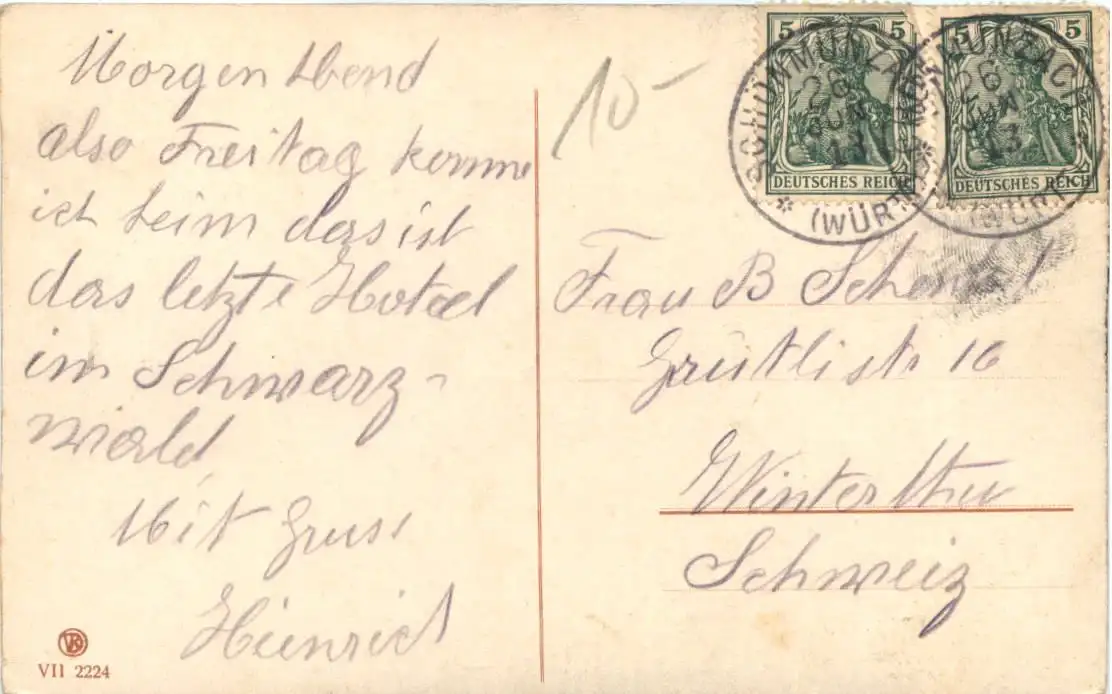 Morgen Abend
also Freitag komme
ich heim das ist
das letzte Hotel
im Schwarz-
wald
Mit Gruss
Heinrich
VII 2224
10-
5 5
DEUTSCHES REICH
5 5
DEUTSCHES REICH
SCHÖNMÜNZACH
26
JUN
13
(WÜRTT.)
MÜNZACH
26
JUN
13
(WÜRTT
Frau B Schenkel
Grütlistr 16
Winterthur
Schweiz